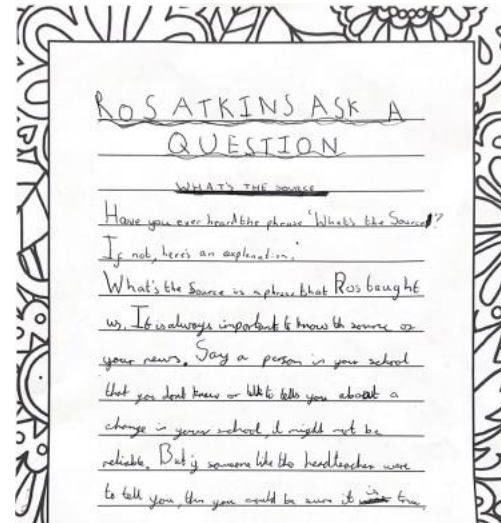 ROS ATKINS ASK A
QUESTION
WHAT'S THE SOURCE
Have you ever heard the phrase 'What's the Source'?
If not, here's an explanation.
What's the Source is a phrase that Ros taught
us. It is always important to know th source of
your news. Say a person in your school
that you dont know or talk to tells you about a
change in your school, it might not be
reliable. But if someone like the headteacher were
to tell you, then you could be sure it is true.